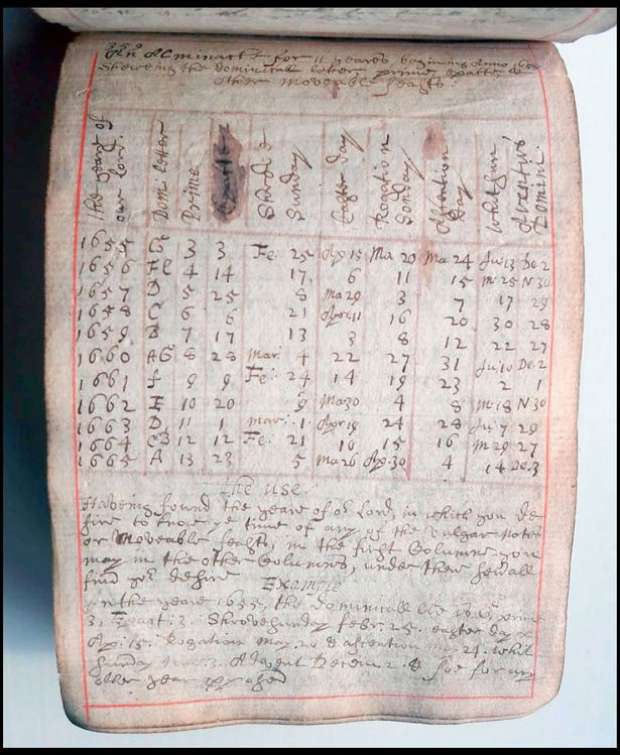 An Alminack for 11 years begining Anno
sheweing the dominicall letter prime epacts &
other moveable feasts
the yeare of our Lord. Dom: letter Prime Epacts Shrove Sunday Easter day Rogation Sonday Assention Day Whitsun Adventus Domini
1655 G 3 3 Fe: 25 Apr 15 Ma 20 Ma 24 Ju 3 De 2
1656 FE 4 14 17 6 11 15 M 25 N 30
1657 D 5 25 8 Ma 29 3 7 17 29
1658 C 6 6 21 Apr 11 16 20 30 28
1659 B 7 17 13 3 8 12 22 27
1660 AG 8 28 Mar: 4 22 27 31 Ju 10 De. 2
1661 f 9 9 Fe: 24 14 19 23 2 1
1662 E 10 20 9 Ma 30 4 8 M 18 N 30
1663 D 11 1 Mar: 1 Apr 19 24 28 Ju: 7 29
1664 CB 12 12 Fe: 21 10 15 16 M 29 27
1665 A 13 23 5 Ma 26 Ap. 30 4 14 De. 3
The use
Haveing found the yeare of or Lord, in which you de
sire to know ye time of any of the Vulgar Notes
or Moveable feasts, in the first Columne you
may in the other Columns, under their
find yor desire
Example
in the yeare 1655, the Dominicall prime
3, Epact: 3. Shrovesunday Febr. 25. easter day
Apr: 15. Rogation may. 20 & assention may 24. whit
sunday 3. Advent Decem: 2. & soe for any
other year